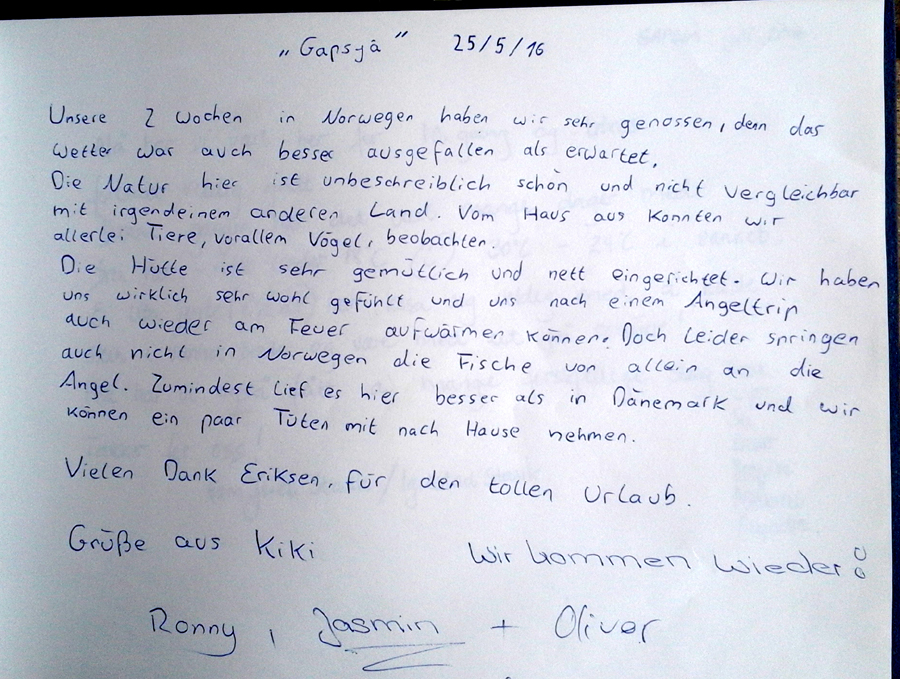 „Gapsjå” 25/5/16
Unsere 2 Wochen in Norwegen haben wir sehr genossen, denn das
Wetter war auch besser ausgefallen als erwartet.
Die Natur hier ist unbeschreiblich schön und nicht vergleichbar
mit irgendeinem anderen Land. Vom Haus aus konnten wir
allerlei Tiere, vorallem Vögel, beobachten.
Die Hütte ist sehr gemütlich und nett eingerichtet. Wir haben
uns wirklich sehr wohl gefühlt und uns nach einem Angeltrip
auch wieder am Feuer aufwärmen können. Doch leider springen
auch nicht in Norwegen die Fische von allein an die
Angel. Zumindest lief es hier besser als in Dänemark und wir
können ein paar Tüten mit nach Hause nehmen.
Vielen Dank Eriksen, für den tollen Urlaub.
Grüße aus Kiki Wir kommen wieder!
Ronny, Jasmin + Oliver